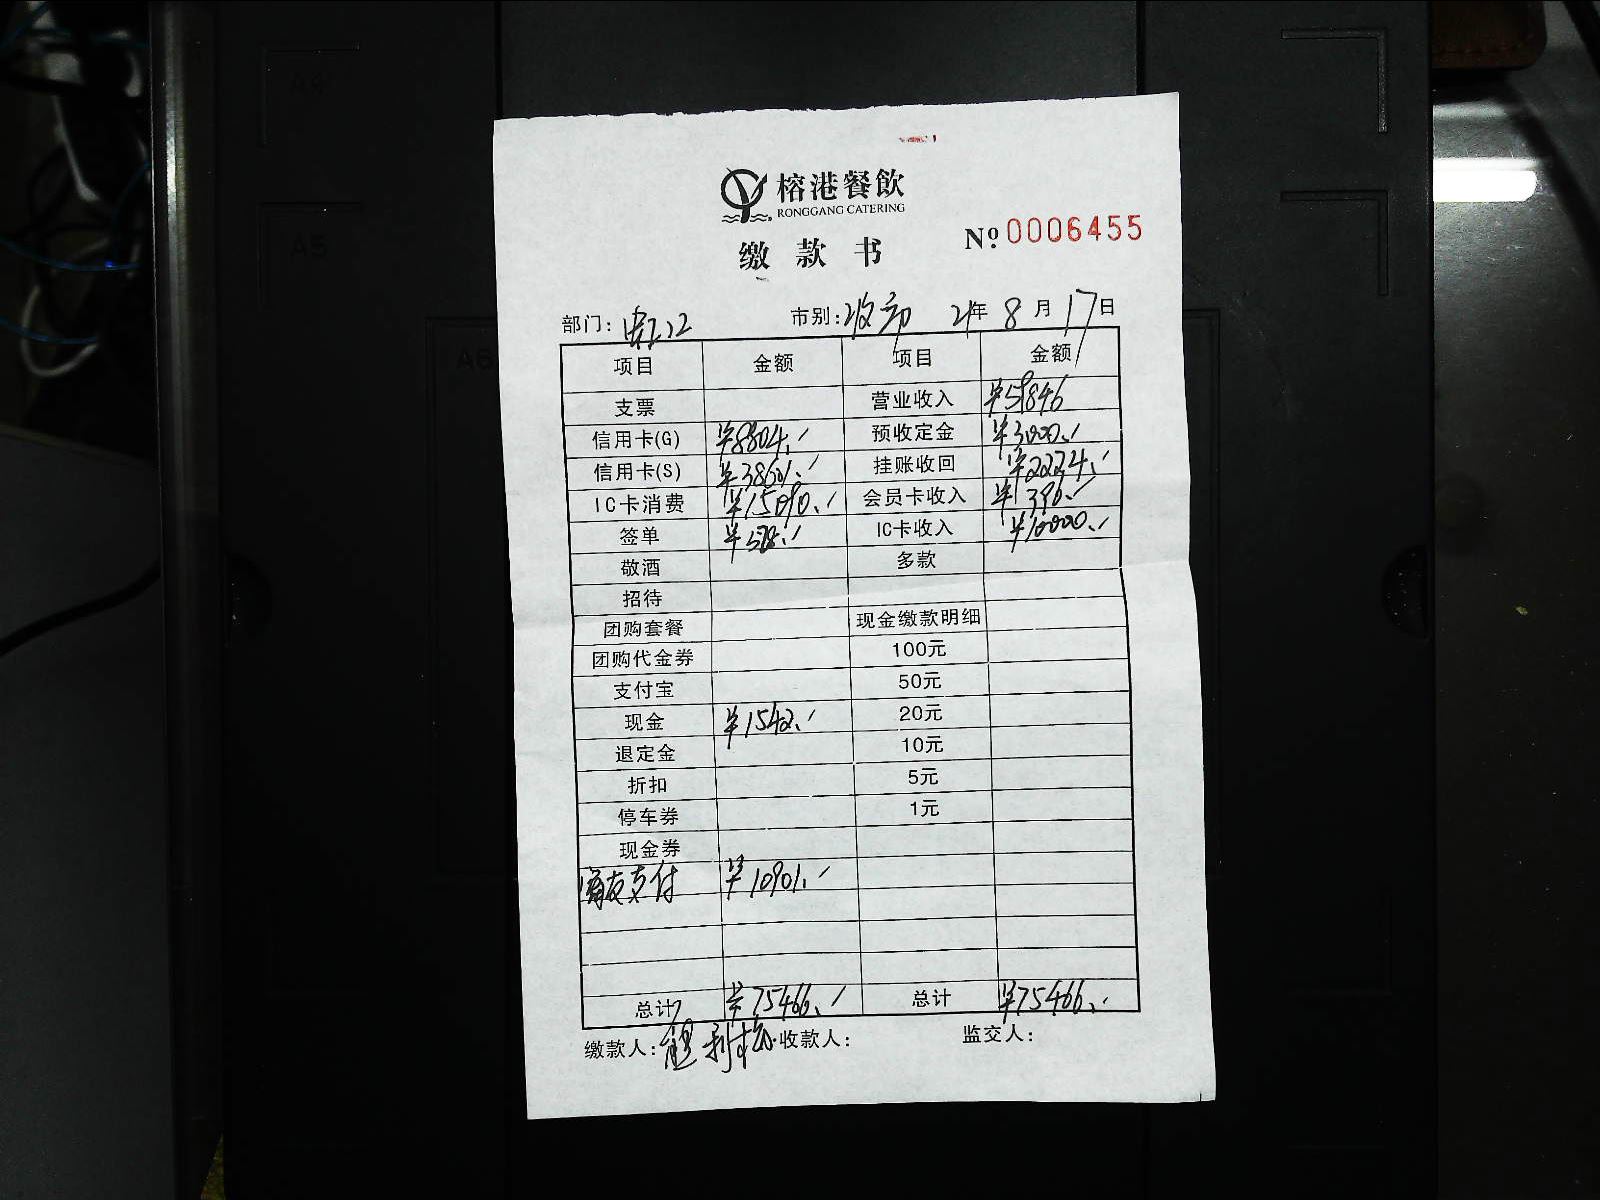 A4
A5
A6
榕港餐飲
RONGGANG CATERING
缴款书
Nº 0006455
部门: 市别: 21年 8月 17日
项目 金额 项目 金额
支票 营业收入 ¥59846
信用卡(G) ¥8804.- 预收定金 ¥3000.-
信用卡(S) ¥38601.- 挂账收回 ¥2224.-
IC卡消费 ¥15090.- 会员卡收入 ¥396.-
签单 ¥528.- IC卡收入 ¥10000.-
敬酒 多款
招待
团购套餐 现金缴款明细
团购代金券 100元
支付宝 50元
现金 ¥1542.- 20元
退定金 10元
折扣 5元
停车券 1元
现金券
支付 ¥10901.-
总计 ¥75466.- 总计 ¥75466.-
缴款人: 收款人: 监交人: